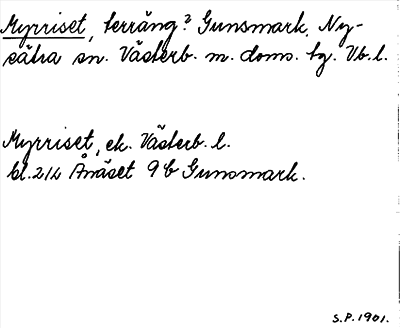 Myrriset, terräng? Gunsmark, Ny-
sätra sn. Västerb. m. doms. tg. Vb. l.
Myrriset, ek. Västerb. l.
bl. 212 Ånäset 9 b Gunsmark.
S.P. 1901.